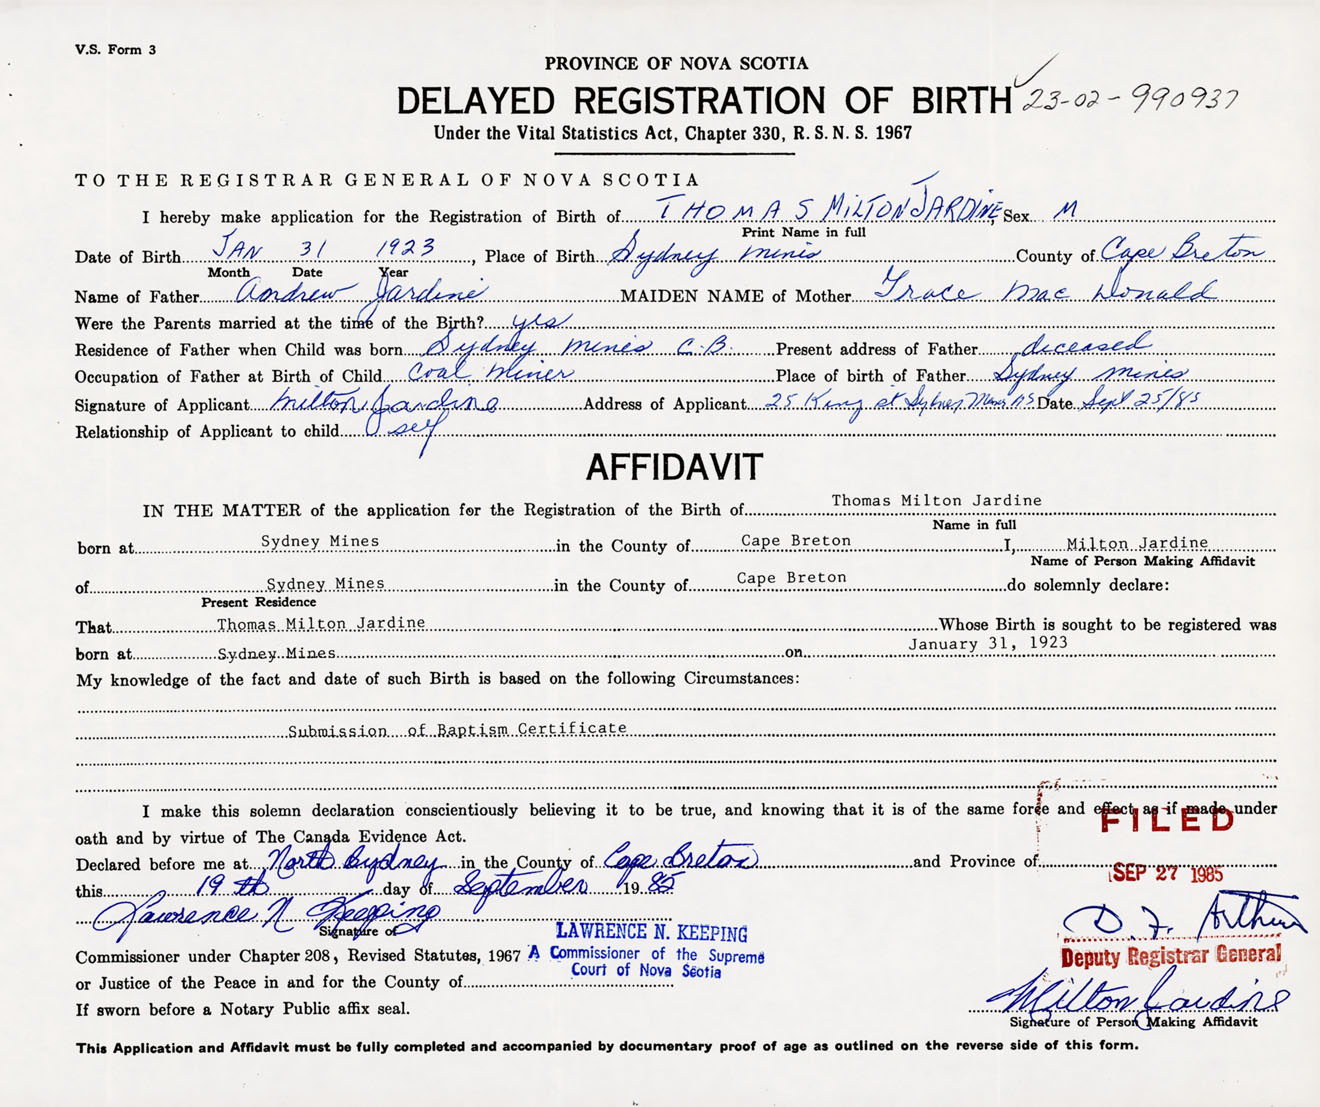 V.S. Form 3
PROVINCE OF NOVA SCOTIA
DELAYED REGISTRATION OF BIRTH 23-02-990937
Under the Vital Statistics Act, Chapter 330, R.S.N.S. 1967
TO THE REGISTRAR GENERAL OF NOVA SCOTIA
I hereby make application for the Registration of Birth of THOMAS MILTON JARDINE, Sex M
Print Name in full
Date of Birth JAN 31 1923, Place of Birth Sydney mines County of Cape Breton
Month Date Year
Name of Father Andrew Jardine MAIDEN NAME of Mother Grace Mac Donald
Were the Parents married at the time of the Birth? yes
Residence of Father when Child was born Sydney mines C.B. Present address of Father deceased
Occupation of Father at Birth of Child Coal miner Place of birth of Father Sydney mines
Signature of Applicant Milton Jardine Address of Applicant 25 King st Sydney Mines NS Date Sept 25/85
Relationship of Applicant to child self
AFFIDAVIT
IN THE MATTER of the application for the Registration of the Birth of Thomas Milton Jardine
Name in full
born at Sydney Mines in the County of Cape Breton I, Milton Jardine
Name of Person Making Affidavit
of Sydney Mines in the County of Cape Breton do solemnly declare:
Present Residence
That Thomas Milton Jardine Whose Birth is sought to be registered was
born at Sydney Mines on January 31, 1923
My knowledge of the fact and date of such Birth is based on the following Circumstances:
Submission of Baptism Certificate
I make this solemn declaration conscientiously believing it to be true, and knowing that it is of the same force and effect as if made under
oath and by virtue of The Canada Evidence Act.
FILED
Declared before me at North Sydney in the County of Cape Breton and Province of
SEP 27 1985
this 19th day of September 1985
Lawrence N Keeping
D. F. Arthur
Signature of
LAWRENCE N. KEEPING
A Commissioner of the Supreme
Court of Nova Scotia
Deputy Registrar General
Commissioner under Chapter 208, Revised Statutes, 1967
or Justice of the Peace in and for the County of
Milton Jardine
If sworn before a Notary Public affix seal.
Signature of Person Making Affidavit
This Application and Affidavit must be fully completed and accompanied by documentary proof of age as outlined on the reverse side of this form.